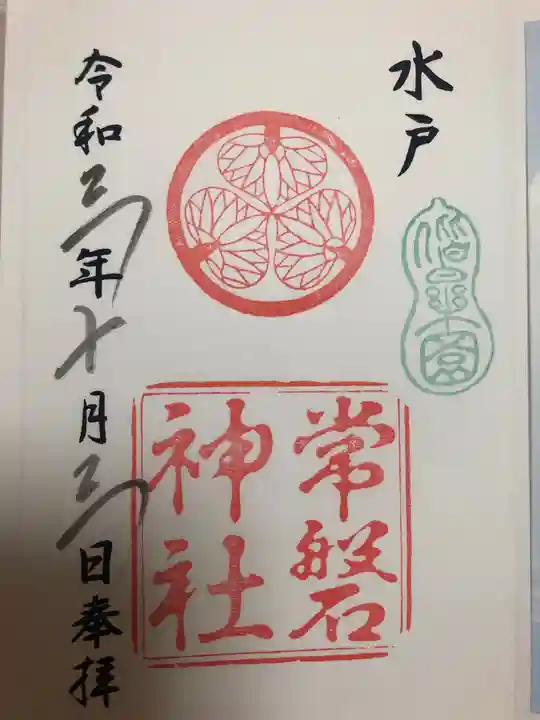 水戸
偕楽園
常磐
神社
令和三年十月三日奉拝